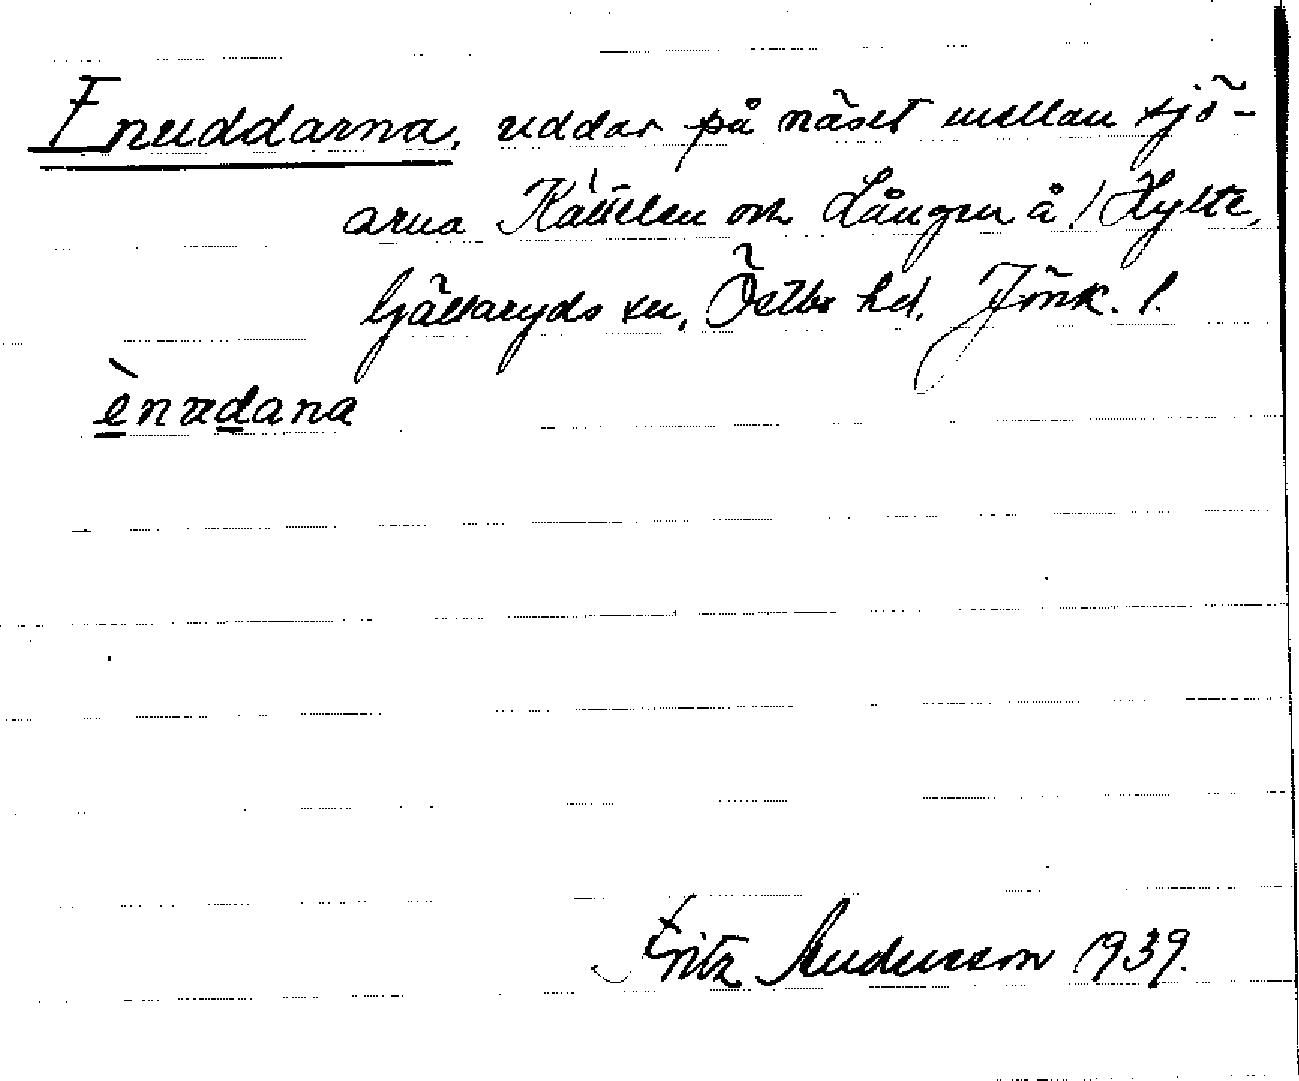 Enuddarna, uddar på näset mellan sjö-
arna Kätteln och Lången å ! Hylte,
Gällaryds sn, Östbo hd, Jönk. l.
ènudana
Fritz Andersson 1939.